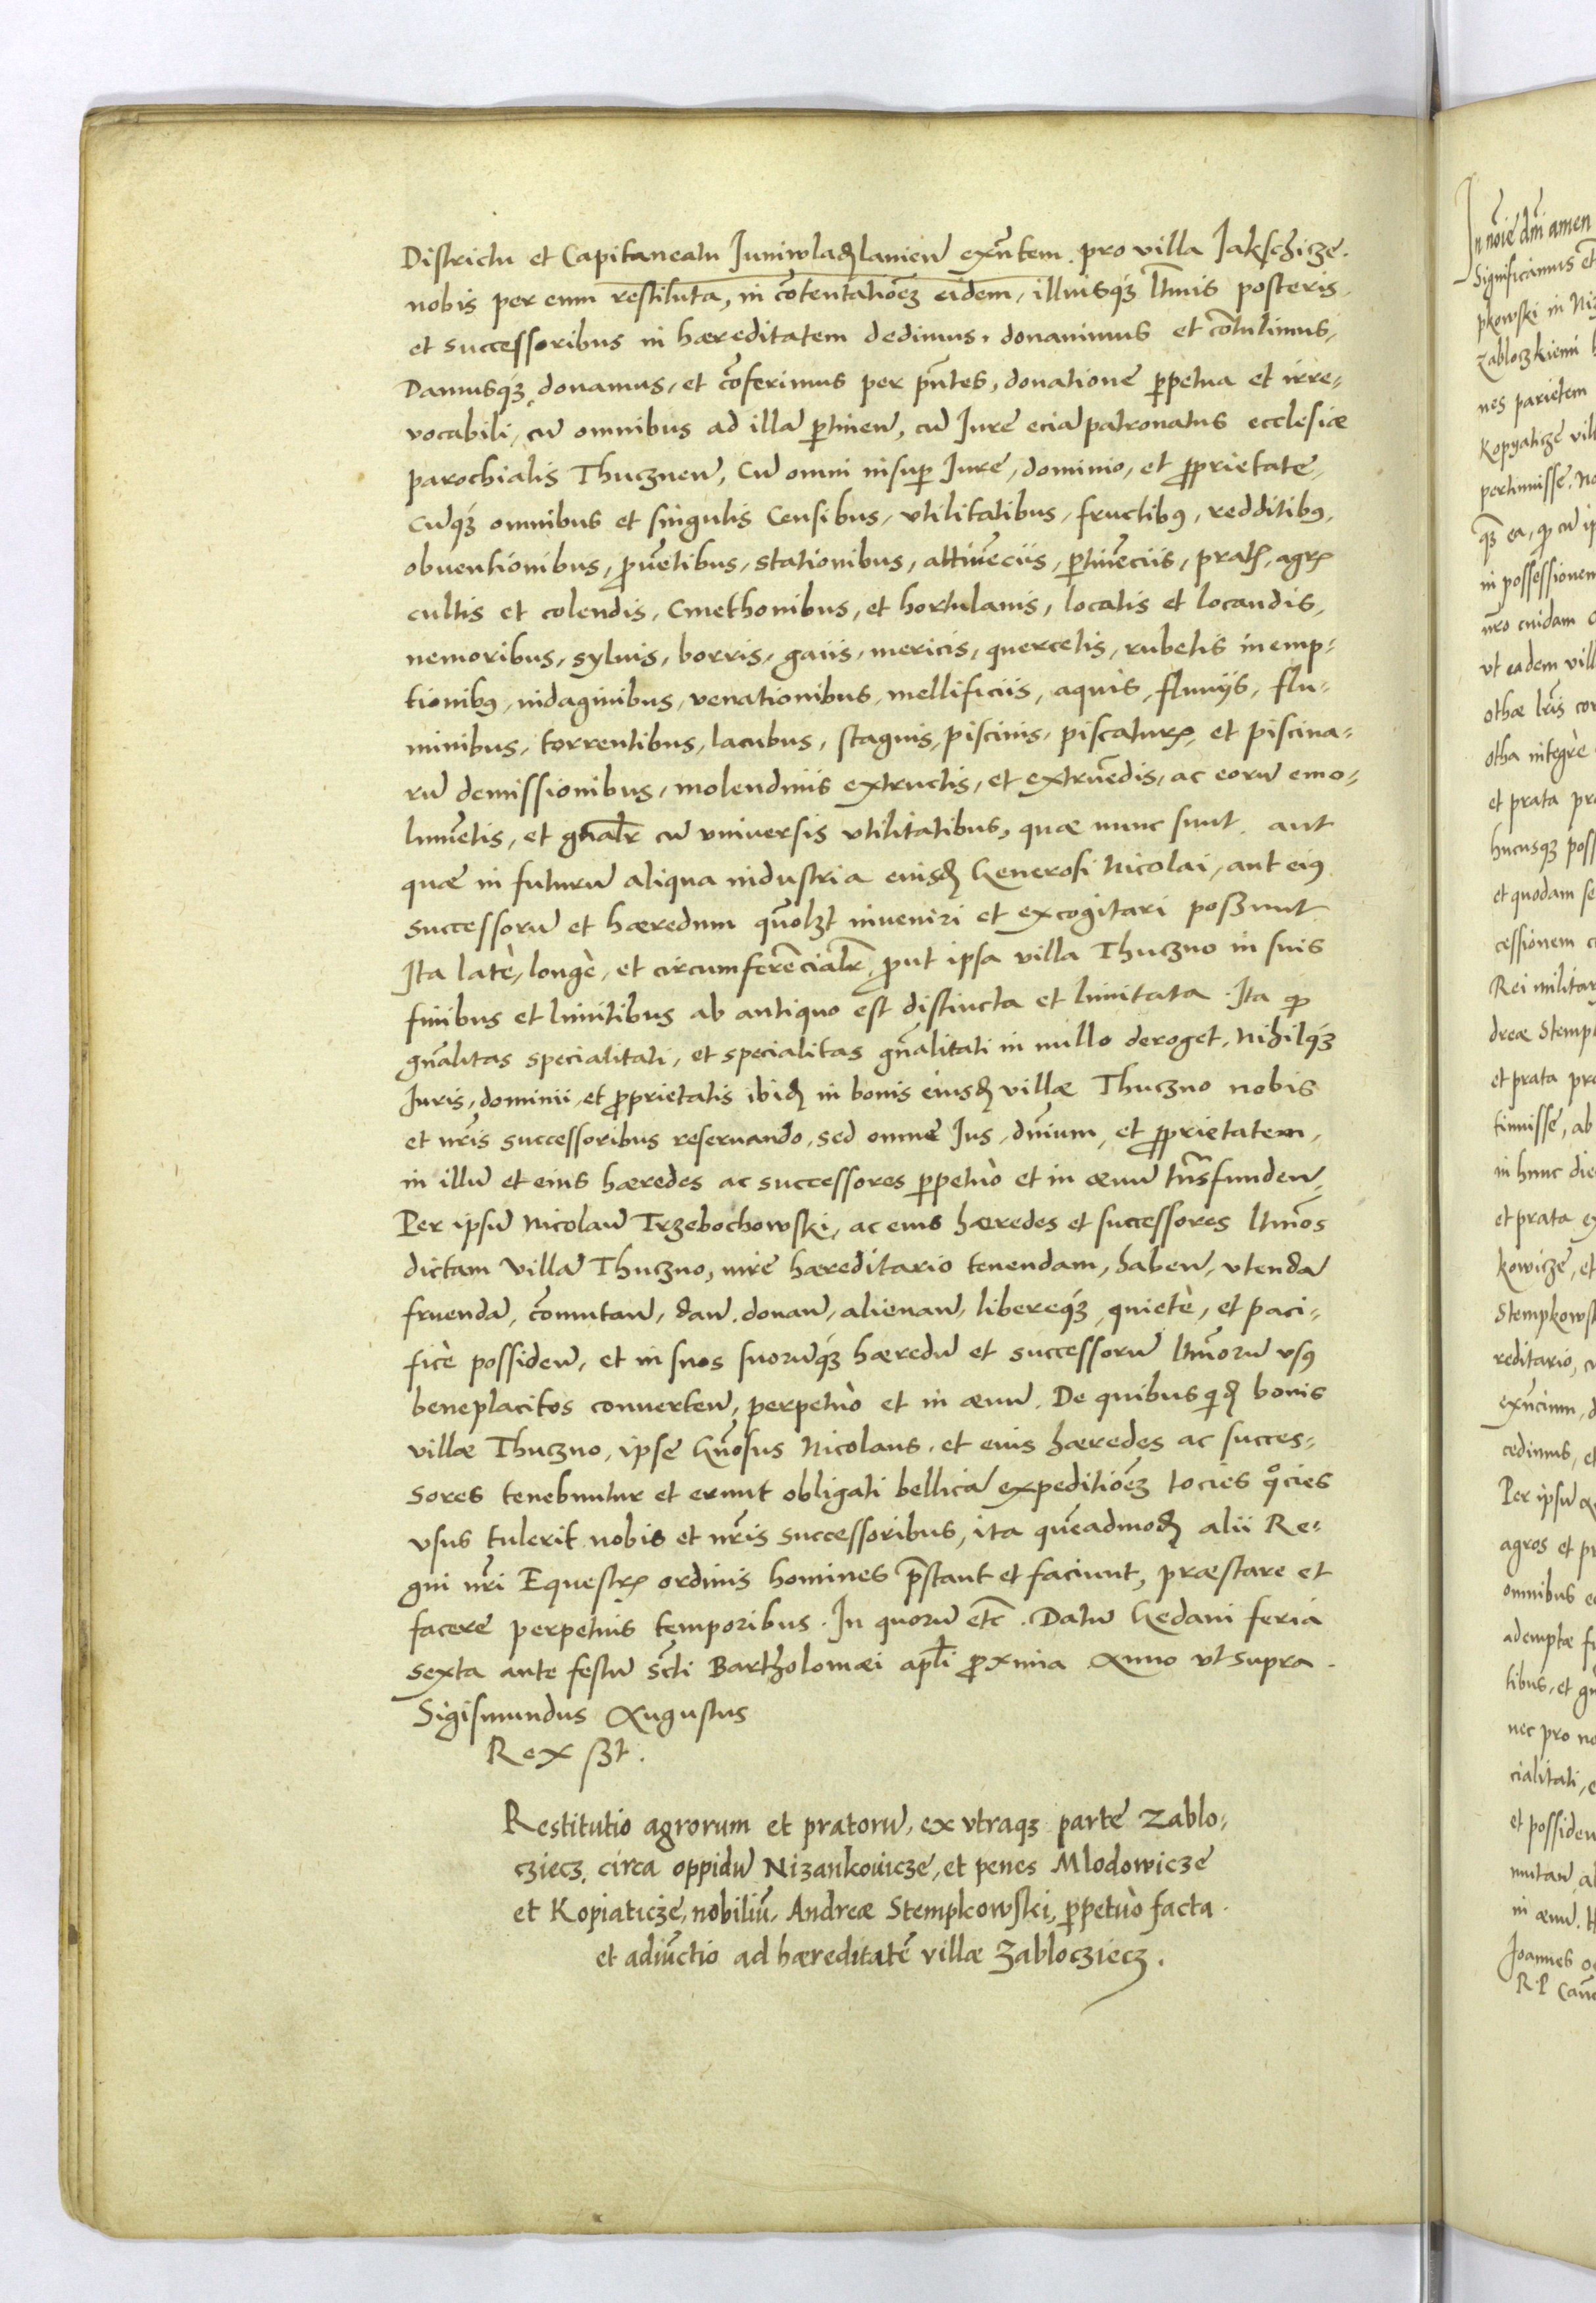 Districtu et Capitaneatu Juniwladislauien̄ exn̄tem. pro villa Jakschicze.
nobis per eum restituta, in cōtentatioēz eidem, illiusq́ʒ ltīmis posteris
et successoribus in hæreditatem dedimus, donauimus et cōtulimus,
Damusq́ʒ, donamus, et cōferimus per pn̄tes, donatione ꝑpetua et irre-
vocabili, cū omnibus ad illā ꝑtinen̄, cū Jure eciā patronatus ecclesiæ
parochialis Thucznen̄, Cū omni insuꝑ Jure, dominio, et ꝓprietate,
cūq́ʒ omnibus et singulis Censibus, vtilitatibus, fructibꝰ, redditibꝰ,
obuentionibus, ꝓuētibus, stationibus, attinēciis, ꝑtinēciis, pratꝭ, agrꝭ
cultis et colendis, Cmethonibus, et hortulanis, locatis et locandis,
nemoribus, syluis, borris, gaiis, mericis, quercetis, rubetis inemp-
tionibꝰ, indaginibus, venationibus, mellificiis, aquis, fluuijs, flu-
minibus, torrentibus, lacubus, stagnis, piscinis, piscaturꝭ, et piscina-
rū demissionibus, molendinis extructis, et extruēdis, ac eorū emo-
lumētis, et gn̄alr̄ cū vniuersis vtilitatibus, quæ nunc sunt, aut
quæ in futurū aliqua industria eiusđ Generosi Nicolai, aut eiꝰ
successorū et hæredum quōlʒt inueniri et excogitari poßunt
Ita latè, longè, et circumferēcialr̄, ꝓut ipsa villa Thuczno in suis
finibus et limitibus ab antiquo est distincta et limitata. Ita ꝙ
gn̄alitas specialitati, et specialitas gn̄alitati in nullo deroget, Nihilq́ʒ
Juris, dominii, et ꝓprietatis ibiđ in bonis eiusđ villæ Thuczno nobis
et nr̄is successoribus reseruando, sed omne Jus, dn̄ium, et ꝓprietatem,
in illū et eius hæredes ac successores ꝑpetuò et in æuū trn̄sfunden̄,
Per ipsū Nicolaū Trzebochowski, ac eius hæredes et successores ltīmos
dictam villā Thuczno, iure hæreditario tenendam, haben̄, vtendā
fruendā, cōmutan̄, dan̄, donan̄, alienan̄, libereq́ʒ, quietè, et paci-
ficè possiden̄, et in suos suorūq́ʒ hæredū et successorū ltīmorū vsꝰ
beneplacitos conuerten̄, perpetuò et in æuū. De quibus qđ bonis
villæ Thuczno, ipse Gn̄osus Nicolaus, et eius hæredes ac succes-
sores tenebuntur et erunt obligati bellicā expeditioēz tocies qͦcies
vsus tulerit nobis et nr̄is successoribus, ita quēadmođ alii Re-
gni nr̄i Equestrꝭ ordinis homines p̄stant et faciunt, præstare et
facere perpetuis temporibus. In quorū etc̄. Datū Gedani feria
sexta ante festū sc̄ti Bartholomæi apl̄i ꝓxima Anno vt supra.
Sigismundus Augustus
Rex sst.
Restitutio agrorum et pratorū, ex vtraqʒ parte Zablo-
cziecz, circa oppidū Nizankouicze, et penes Mlodowicze
et Kopiaticze, nobiliū, Andreæ Stempkowski, ꝑpetuò facta.
et adiūctio ad hæreditatē villæ Zabloczíecz.
In noīe dn̄i amen
Significamus et
pkowski in Niz
Zabloczkiemi
nes parietem
Kopyaticze vill
pertinuisse, No
qʒ ea, ꝙ cū ip
in possessionem
nr̄o cuidam
vt eadem vill
othæ lr̄is con
otha integrè
et prata pra
hucusqʒ poss
et quodam se
cessionem
Rei militar
dreæ Stemp
et prata præ
tinuisse, ab
in hunc die
et prata ex
kowicze, et
Stempkowsk
reditario, cu
exn̄cium, d
cedimus, et
Per ipsū
agros et pr
omnibus
ademptæ
tibus, et gn̄
nec pro
cialitati, e
et possiden
mutan̄, al
in æuū.
Joannes
R. P. Can̄